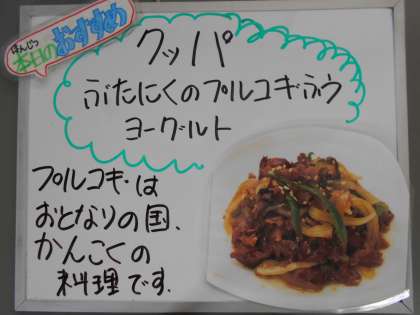 ほんじつ
本日のおすすめ
クッパ
ぶたにくのプルコギふう
ヨーグルト
プルコギは
おとなりの国、
かんこくの
料理です。